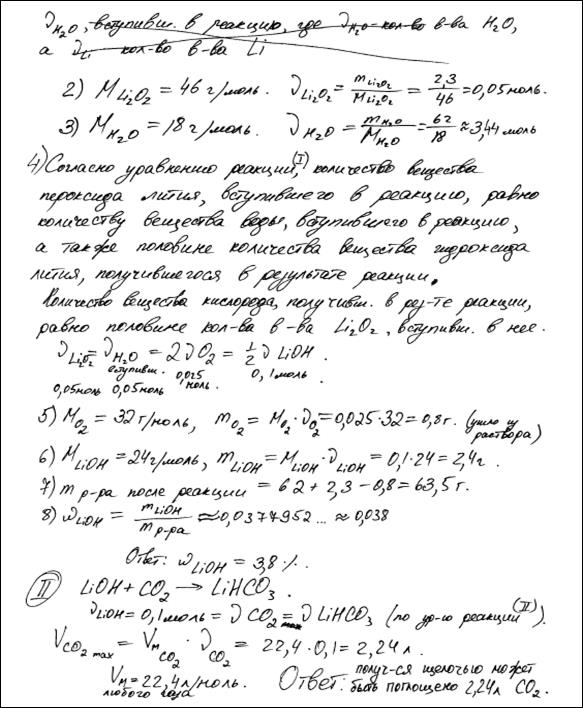 νH₂O, вступивш. в реакцию, где νH₂O – кол-во в-ва H₂O,
а νLi кол-во в-ва Li
2) M Li₂O₂ = 46 г/моль. ν Li₂O₂ = m Li₂O₂ / M Li₂O₂ = 2,3 / 46 = 0,05 моль.
3) M H₂O = 18 г/моль. ν H₂O = m H₂O / M H₂O = 62 / 18 ≈ 3,44 моль
4) Согласно уравнению реакции (I), количество вещества
пероксида лития, вступившего в реакцию, равно
количеству вещества воды, вступившего в реакцию,
а также половине количества вещества гидроксида
лития, получившегося в результате реакции.
Количество вещества кислорода, получивш. в рез-те реакции,
равно половине кол-ва в-ва Li₂O₂, вступивш. в нее.
ν Li₂O₂ = ν H₂O = 2ν O₂ = 1/2 ν LiOH.
вступивш. 0,025 моль. 0,1 моль.
0,05 моль 0,05 моль
5) M O₂ = 32 г/моль, m O₂ = M O₂ · ν O₂ = 0,025 · 32 = 0,8 г. (ушло из
раствора)
6) M LiOH = 24 г/моль, m LiOH = M LiOH · ν LiOH = 0,1 · 24 = 2,4 г.
7) m р-ра после реакции = 62 + 2,3 – 0,8 = 63,5 г.
8) ω LiOH = m LiOH / m р-ра ≈ 0,0377952... ≈ 0,038
Ответ: ω LiOH = 3,8 %.
II LiOH + CO₂ → LiHCO₃.
ν LiOH = 0,1 моль = ν CO₂ max = ν LiHCO₃ (по ур-ю реакции (II)).
V CO₂ max = Vм CO₂ · ν CO₂ = 22,4 · 0,1 = 2,24 л.
Vм = 22,4 л/моль.
любого газа
Ответ: получ-ся щелочью может
быть поглощено 2,24 л CO₂.